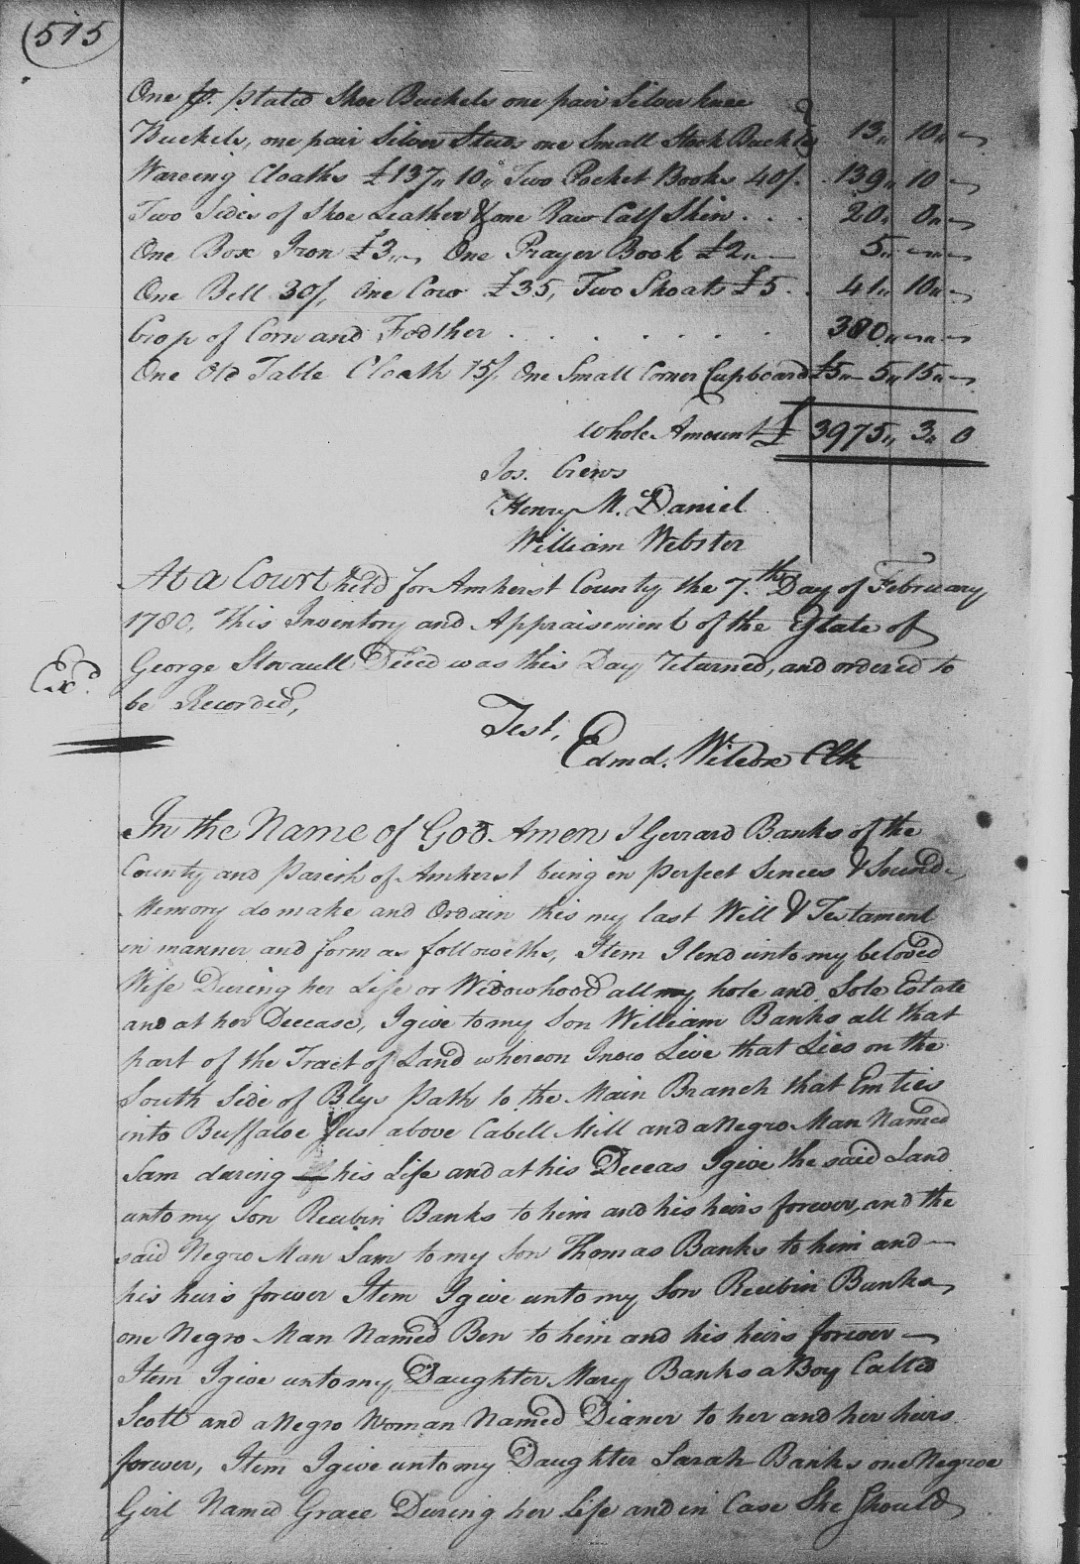 515
One pr. plated Shoe Buckels one pair Silver knee
Buckels, one pair Silver Studs one Small Stock Buckle 13,, 10,,
Wareing Cloaths £137,, 10,, Two Pocket Books 40/. 139,, 10
Two Sides of Shoe Leather & one Raw Calf Skin . . . 20,, 0,,
One Box Iron £3,, One Prayer Book £2,, 5,,
One Bell 30/, one Cow £35, Two Shoats £5 . . 41,, 10,,
Crop of Corn and Fodther . . . . . . . 380,,
One Old Table Cloath 15/, One Small Corner Cupboard £5,, 5,, 15,,
Whole Amount £ 3975,, 3,, 0
Jos. Crews
Henry M. Daniel
William Webster
At a Court held for Amherst County the 7.th Day of February
1780, This Inventory and Appraisement of the Estate of
George Stovaull Deced was this Day returned, and ordered to
Exd.
be Recorded,
Test,
Edmd. Wilcox Clk
In the Name of God Amen I Gerrard Banks of the
County and Parish of Amherst being in perfect Sences & Sound
Memory do make and Ordain this my last Will & Testament
in manner and form as followeths, Item I lend unto my beloved
Wife During her Life or Widowhood all my hole and Sole Estate
and at her Decease, I give to my Son William Banks all that
part of the Tract of Land whereon I now Live that Lies on the
South Side of Blys Path to the Main Branch that Emties
into Buffaloe Jus above Cabell Mill and a Negro Man Named
Sam during his Life and at his Deceas I give the said Land
unto my Son Reubin Banks to him and his heirs forever, and the
said Negro Man Sam to my Son Thomas Banks to him and
his heirs forever Item I give unto my Son Reubin Banks
one Negro Man Named Ben to him and his heirs forever
Item I give unto my Daughter Mary Banks a Boy Called
Scott and a Negro Woman Named Dianer to her and her heirs
forever, Item I give unto my Daughter Sarah Banks one Negroe
Girl Named Grace During her Life and in Case She Should